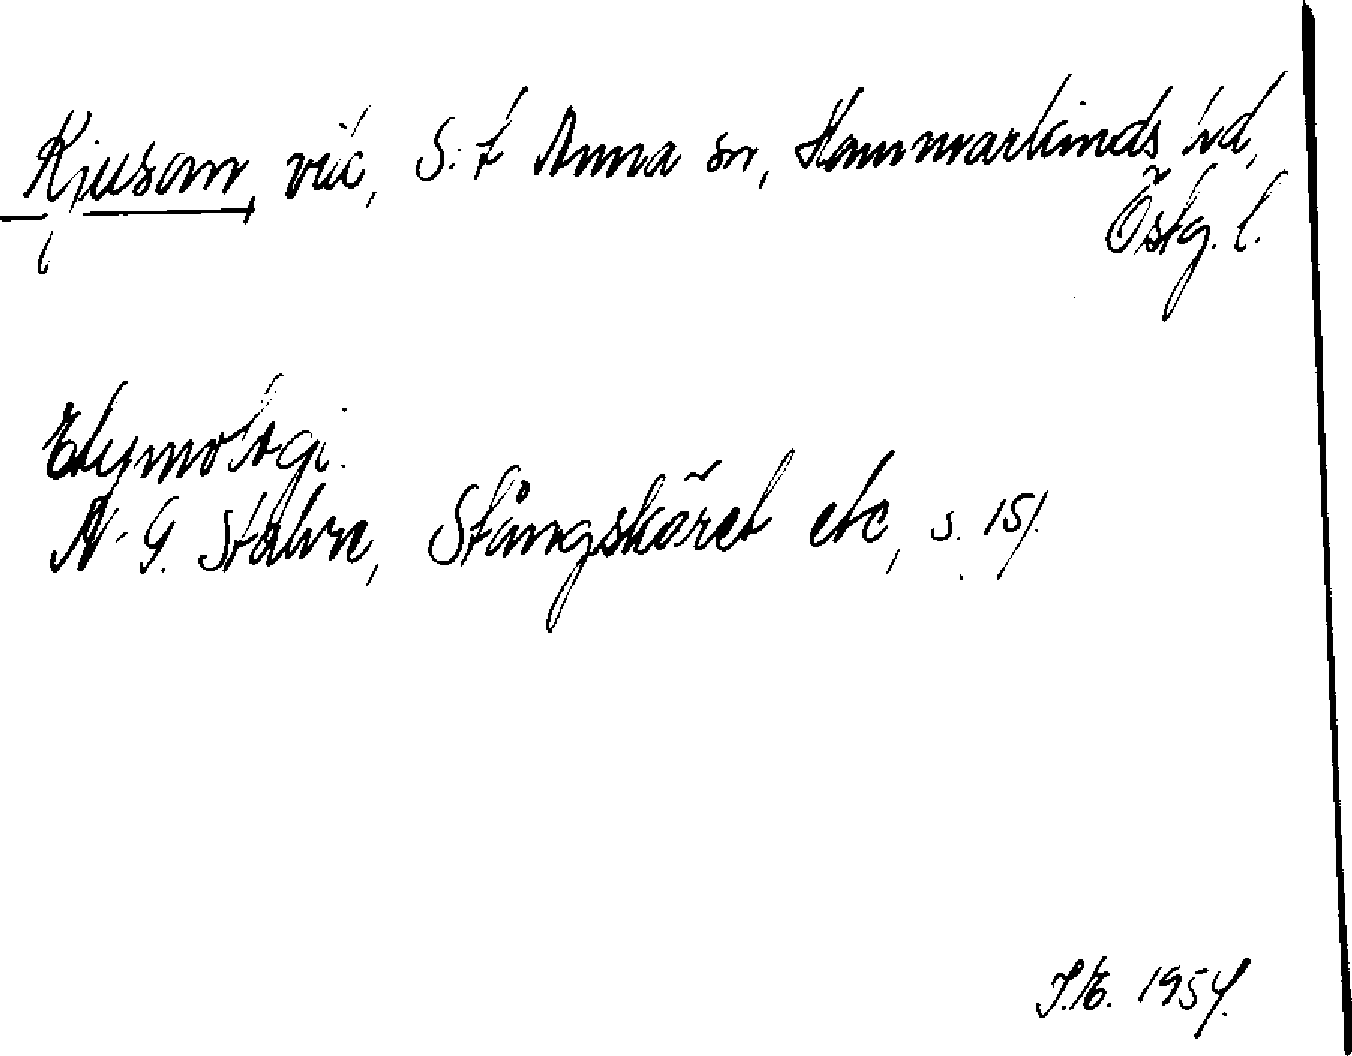 Kjusom, vik, S:t Anna sn, Hammarkinds hd,
Östg. l.
Etymologi.
N-G. Stahre, Stångskäret etc, s. 151.
1954.